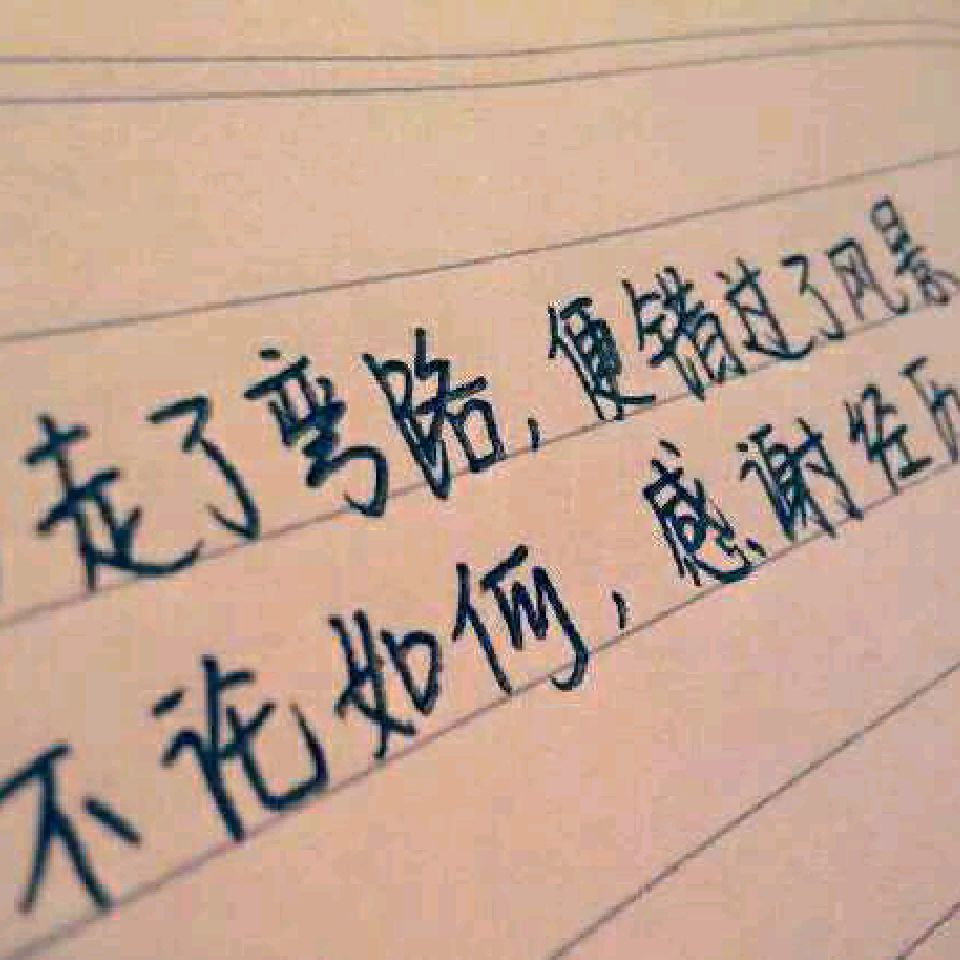 走了弯路,便错过了风景
不论如何,感谢经历